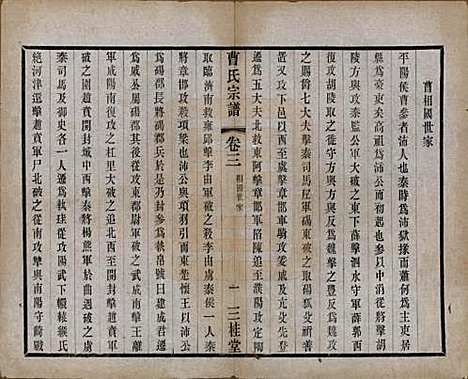 曹相國世家
平陽侯曹參者沛人也秦時為沛獄掾而蕭何為主吏居
縣為豪吏矣高祖為沛公而初起也參以中涓從將擊胡
陵方與攻秦監公軍大破之東下薛擊泗水守軍薛郭西
復攻胡陵取之徙守方與方與反為魏擊之豐反為魏攻
之賜爵七大夫擊秦司馬𡰥軍碭東破之取碭狐父祁善
置又攻下邑以西至虞擊章邯車騎攻爰戚及亢父先登
遷為五大夫北救東阿擊章邯軍陷陳追至濮陽攻定陶
曹氏宗譜 卷三 相國世家 一 三桂堂
取臨濟南救雍邱擊李由軍破之殺李由虜秦侯一人秦
將章邯破殺項梁也沛公與項羽引而東楚懷王以沛公
為碭郡長將碭郡兵於是乃封參為執帛號曰建成君遷
為戚公屬碭郡其後從攻東郡尉軍破之成武南擊王離
軍成陽南復攻之杠里大破之追北西至開封擊趙賁軍
破之圍趙賁開封城中西擊秦將楊熊軍於曲遇破之虜
秦司馬及御史各一人遷為執珪從攻陽武下轘轅緱氏
絕河津還擊趙賁軍尸北破之從南攻犨與南陽守齮戰